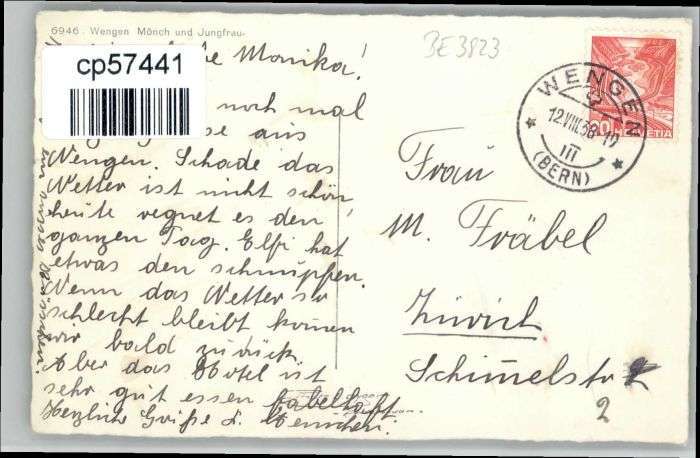 6946. Wengen Mönch und Jungfrau
BE 3823
cp57441
Monika!
noch mal
aus
Wengen. Schade das
Wetter ist nicht schön
heute regnet es den
ganzen Tag. Elfi hat
etwas den schnupfen.
Wenn das Wetter so
schlecht bleibt kommen
wir bald zurück.
Aber das Hotel ist
sehr gut essen fabelhaft.
Herzliche Grüße
WENGEN
12.VIII.38-19
III
(BERN)
20
HELVETIA
Frau
M. Fräbel
Zürich
Schimelstr
2